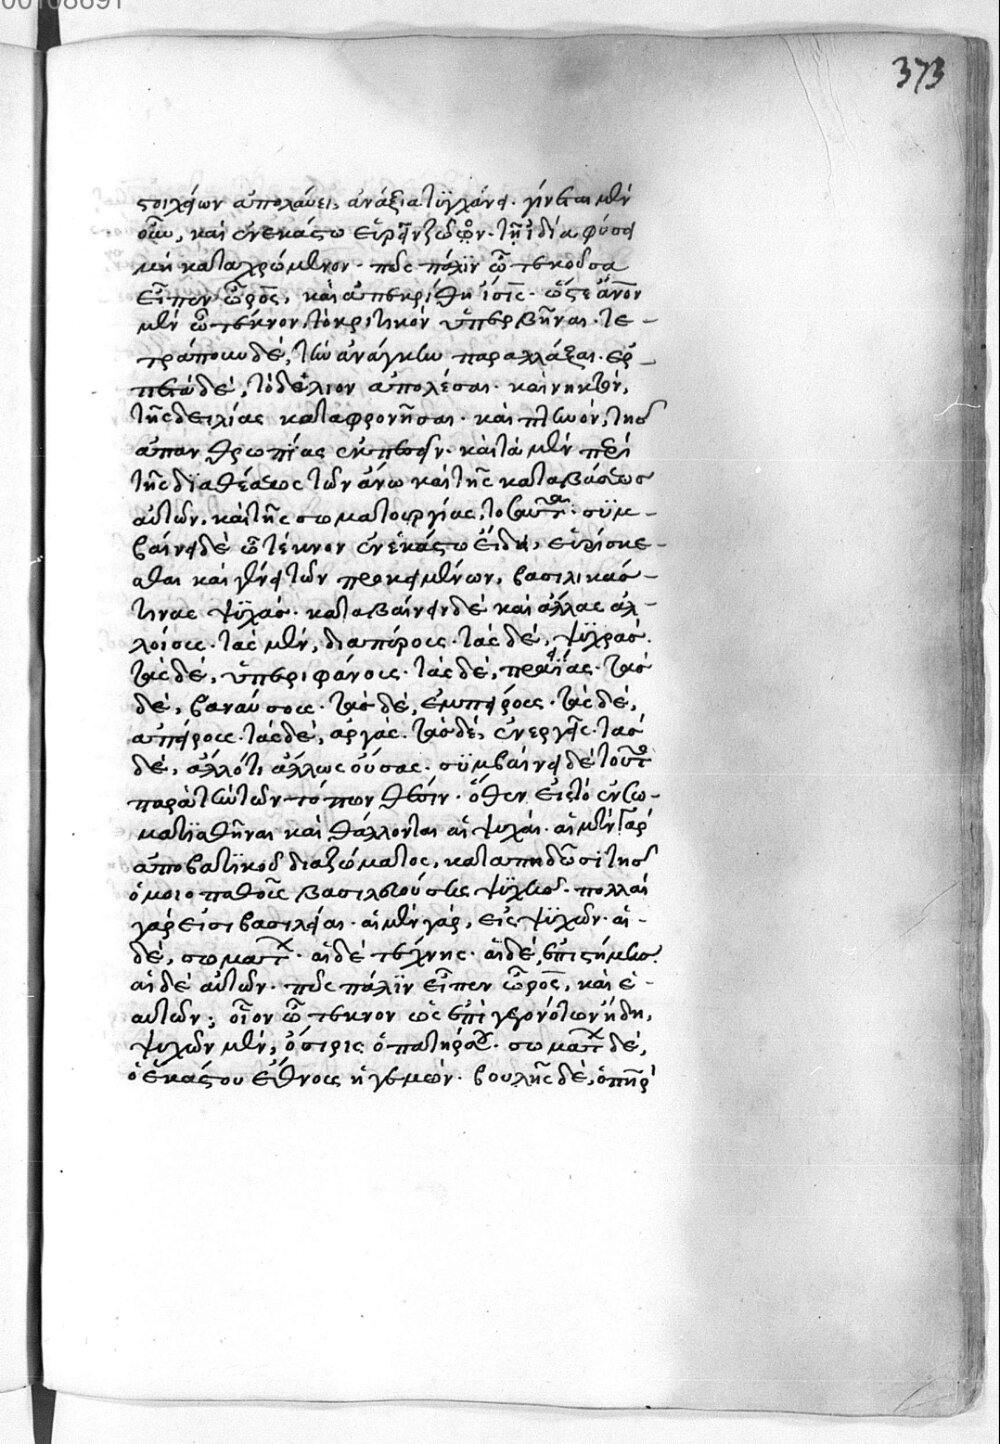 00108691
373
στοιχείων ἀπολαύει, ἀνάξια τυγχάνει. γίνεται μὲν
οὖν, καὶ ἐν ἑκάστω εὑρεῖν ζῶον. τῆ ἰδία φύσει
μὴ καταχρώμενον. πῶς πάλιν ὦ τεκοῦσα
εἶπεν ὧρος, καὶ ἀπεκρίθη ἶσις. ὥστε ἄνον
μὲν ὦ τέκνον, τὸ κριτικὸν ὑπερβῆναι. τε-
τράπουν δὲ, τὴν ἀνάγκην παραλλάξαι. ἑρ-
πετὸ δὲ, τὸ δέλιον ἀπολέσαι. καὶ νηκτὸν,
τῆς δειλίας καταφρονῆσαι. καὶ πτηνὸν, τῆς
ἀπανθρωπίας ἐκπεσεῖν. καὶ τὰ μὲν περὶ
τῆς διαθέσεως τῶν ἄνω καὶ τῆς καταβάσεως
αὐτῶν, καὶ τῆς σωματουργίας, τοιαῦτα. συμ-
βαίνει δὲ ὦ τέκνον ἐν ἑκάστω εἴδει, εὑρίσκε-
σθαι καὶ γένει τῶν προκειμένων, βασιλικάς
τινας ψυχάς. καταβαίνειν δὲ καὶ ἄλλας ἀλ-
λοίους. τὰς μὲν, διαπύρους. τὰς δὲ, ψυχράς.
τὰς δὲ, ὑπεριφάνους. τὰς δὲ, πραείας. τὰς
δὲ, βαναύσους. τὰς δὲ, ἐμπείρους. τὰς δὲ,
ἀπείρους. τὰς δὲ, ἀργάς. τὰς δὲ, ἐνεργεῖς. τὰς
δὲ, ἄλλό τι ἄλλως οὔσας. συμβαίνει δὲ τοῦτο
παρὰ τὴν τῶν τόπων θέσιν. ὅθεν εἰς τὸ ἐνσω-
ματισθῆναι καὶ θάλλονται αἱ ψυχάι. αἱ μὲν γὰρ
ἀποβατικοῦ διαζώματος, καταπηδῶσι τῆς
ὁμοιοπαθοῖς βασιλευούσης ψυχῆς. πολλαὶ
γάρ εἰσι βασιλεῖαι. αἱ μὲν γὰρ, εἰς ψυχῶν. αἱ
δὲ, σωμάτ. αἱ δὲ τέχνης. αἱ δὲ, ἐπιστήμης.
αἱ δὲ αὐτῶν. πῶς πάλιν εἶπεν ὧρος, καὶ ἑ-
αυτῶν; οἷον ὦ τέκνον ὡς ἐπὶ γεγονότων ἤδη,
ψυχῶν μὲν, ὄσιρις ὁ πατήρ σου. σωμάτ δὲ,
ὁ ἑκάστου ἔθνους ἡγεμών. βουλῆς δὲ, ὁ πῆρ